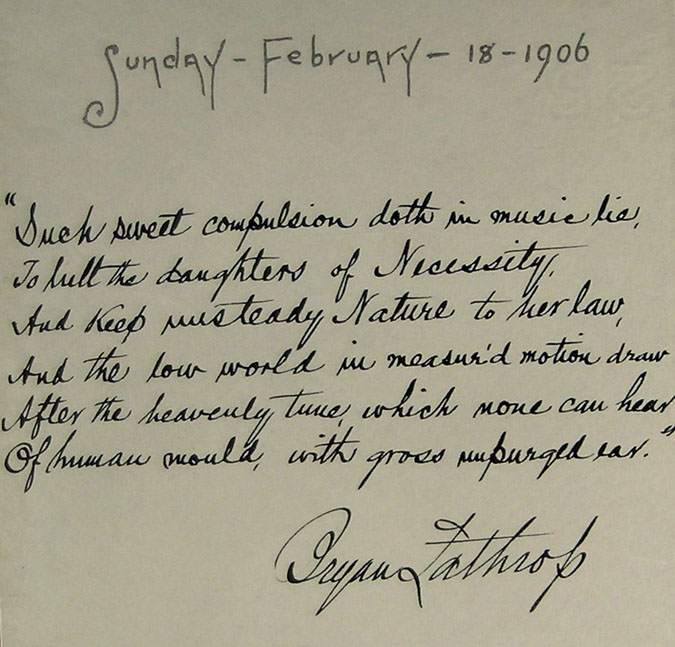 Sunday - February - 18 - 1906
"Such sweet compulsion doth in music lie,
To lull the daughters of Necessity,
And keep unsteady Nature to her law,
And the low world in measur'd motion draw
After the heavenly tune, which none can hear
Of human mould, with gross unpurged ear."
Bryan Lathrop